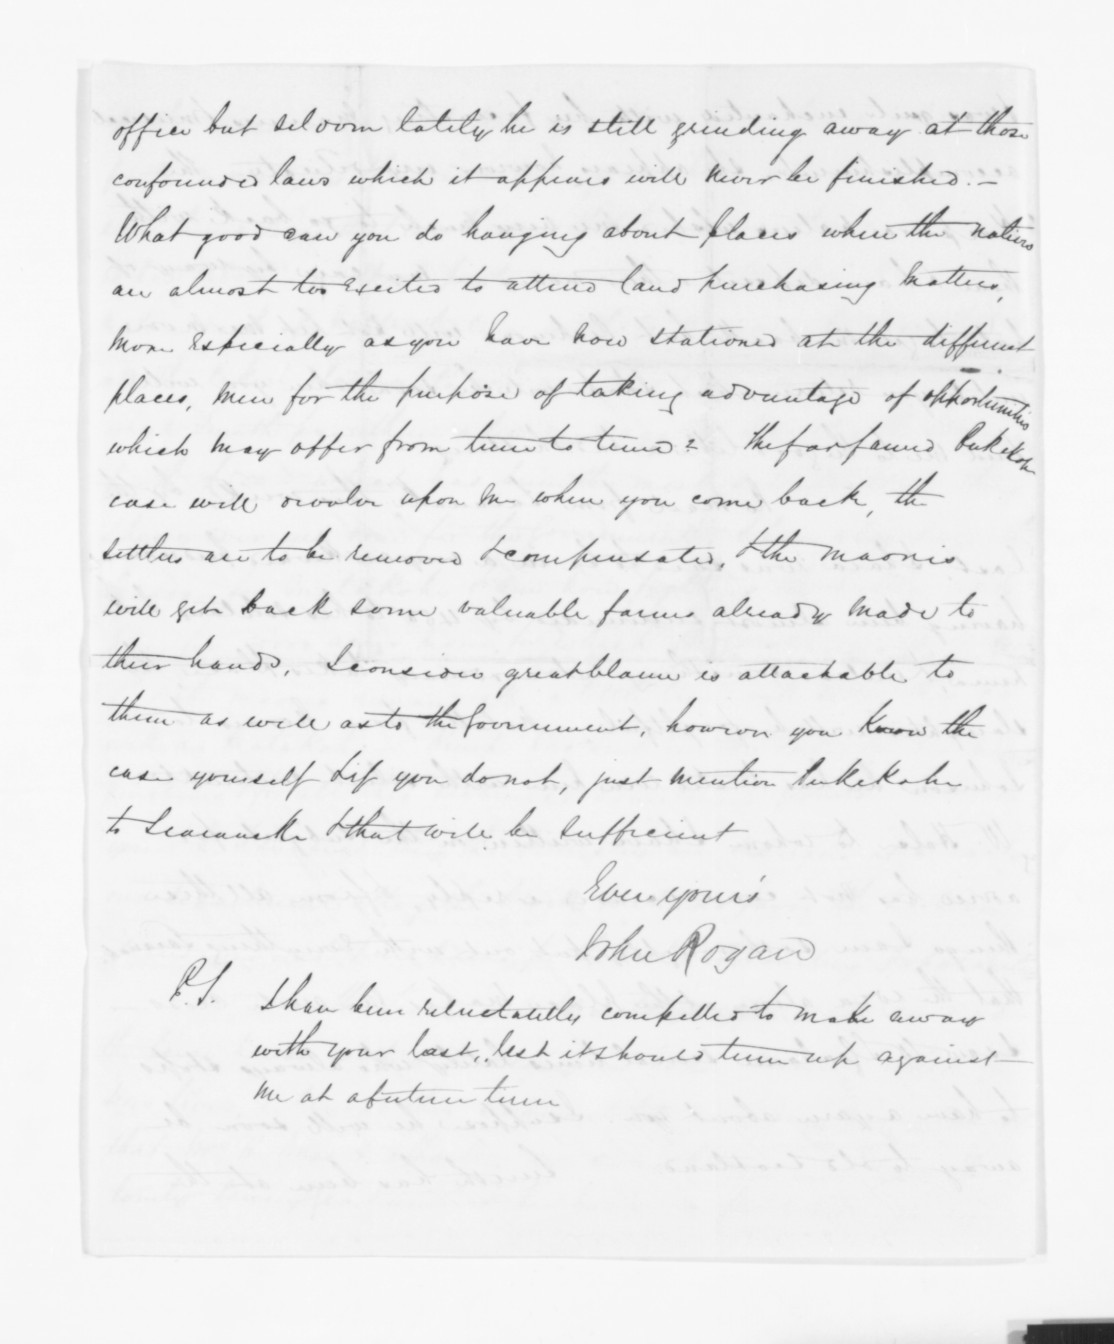 office but seldom lately he is still grinding away at those
confounded laws which it appears will never be finished. –
What good can you do hanging about places where the natives
are almost too excited to attend land purchasing matters,
more especially as you have now stationed at the different
places, men for the purpose of taking advantage of opportunities
which may offer from time to time? The far famed Pukekohe
case will devolve upon me when you come back, the
settlers are to be removed & compensated, & the maories
will get back some valuable farms already made to
their hands. I consider great blame is attachable to
them as well as to the Government, however you know the
case yourself & if you do not, just mention Pukekohe
to Searancke & that will be sufficient
Ever yours
John Rogan
P.S. I have been reluctatelly compelled to make away
with your last, lest it should turn up against
me at a future time